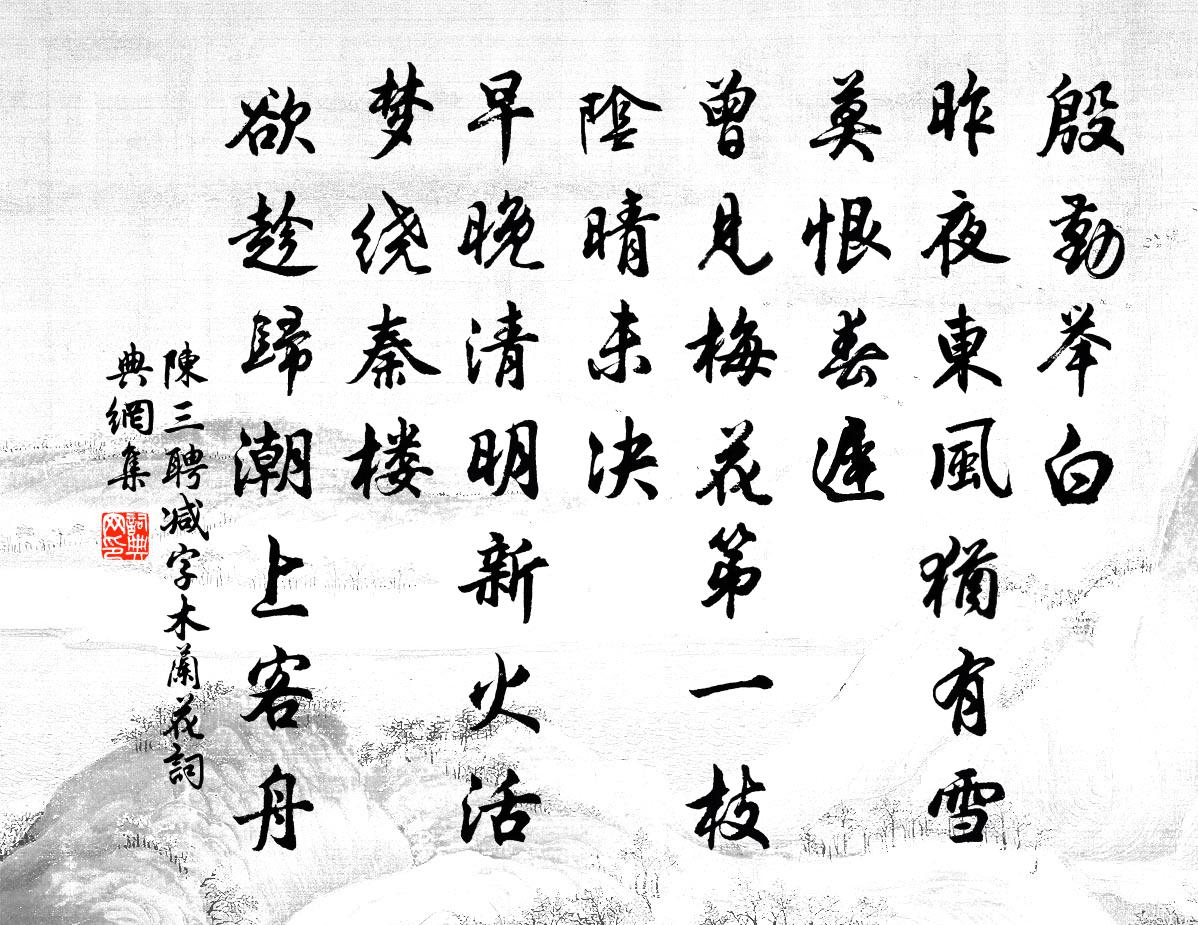 殷勤举白
昨夜東風猶有雪
莫恨春遲
曾見梅花第一枝
陰晴未决
早晚清明新火活
梦绕秦楼
欲趁歸潮上客舟
陳三聘减字木蘭花詞
典網集
詞典网印